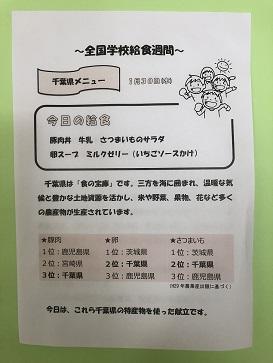 ～全国学校給食週間～
千葉県メニュー
1月30日(木)
今日の給食
豚肉丼 牛乳 さつまいものサラダ
卵スープ ミルクゼリー（いちごソースかけ）
千葉県は「食の宝庫」です。三方を海に囲まれ、温暖な気
候と豊かな土地資源を活かし、米や野菜、果物、花など多く
の農産物が生産されています。
★豚肉 ★卵 ★さつまいも
1位：鹿児島県 1位：茨城県 1位：茨城県
2位：宮崎県 2位：千葉県 2位：千葉県
3位：千葉県 3位：鹿児島県 3位：鹿児島県
(H29年農産出額に基づく)
今日は、これら千葉県の特産物を使った献立です。